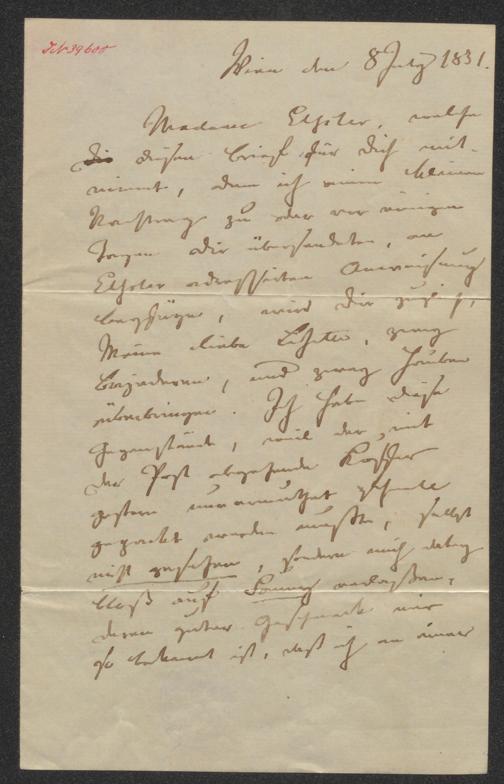 IN 39600
Wien den 8 July 1831.
Madame Elßler, welche
die diesen Brief für Dich mit-
nimmt, dem ich einen kleinen
Nachtrag zu der vor einigen
Tagen Dir übersendeten, an
Elßler adressirten Anweisung
beyfüge, wird Dir
Meine liebe zwey
und zwey Hauben
überbringen. Ich habe diese
Gegenstände, weil der, mit
der Post abgehende Koffer
gestern unvermuthet schnell
gepackt werden mußte, selbst
nicht gesehen, sondern mich dabey
bloß auf Fanny verlassen,
deren guter Geschmack mir
so bekannt ist, daß ich an einer